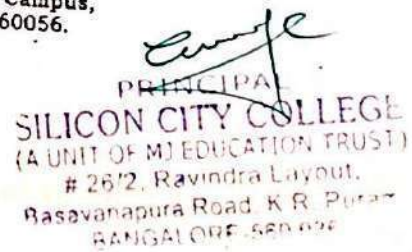 Campus,
60056.
PRINCIPAL
SILICON CITY COLLEGE
(A UNIT OF MJ EDUCATION TRUST)
# 26/2, Ravindra Layout,
Basavanapura Road, K.R. Puram
BANGALORE-560 036